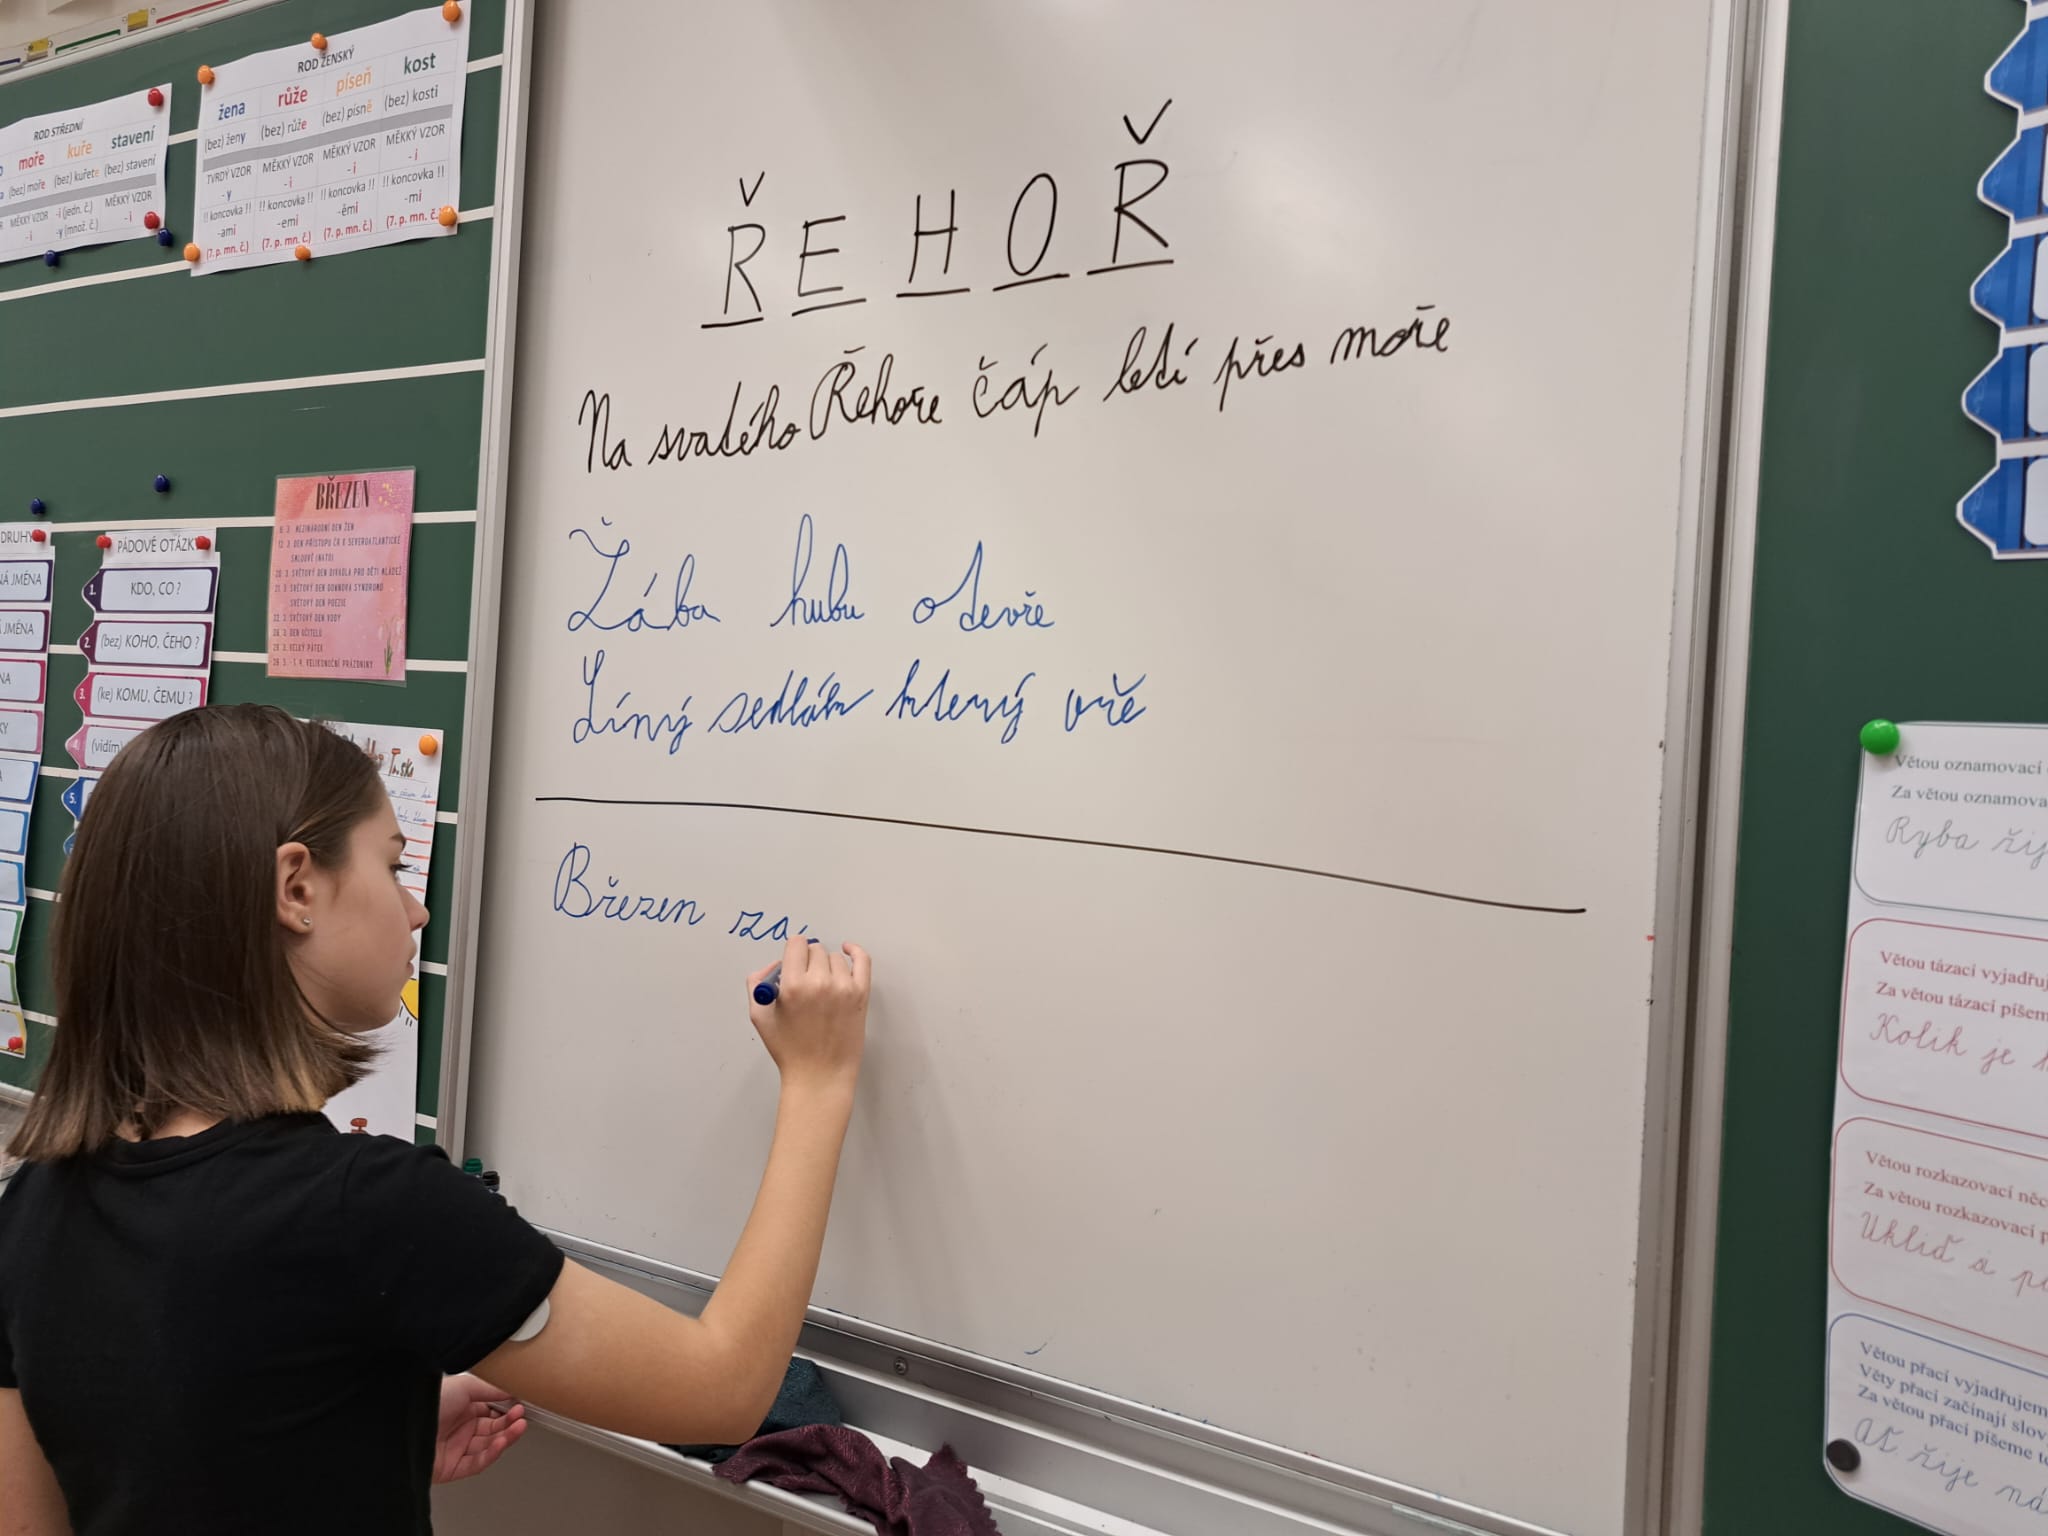 ROD STŘEDNÍ
moře kuře stavení
(bez) moře (bez) kuřete (bez) stavení
MĚKKÝ VZOR -i (jedn. č.) MĚKKÝ VZOR
-i -y (množ. č.) -i
ROD ŽENSKÝ
žena růže píseň kost
(bez) ženy (bez) růže (bez) písně (bez) kosti
TVRDÝ VZOR MĚKKÝ VZOR MĚKKÝ VZOR MĚKKÝ VZOR
-y -i -i -i
!! koncovka !! !! koncovka !! !! koncovka !! !! koncovka !!
-ami -emi -ěmi -mi
(7. p. mn. č.) (7. p. mn. č.) (7. p. mn. č.) (7. p. mn. č.)
ŘEHOŘ
Na svatého Řehoře čáp letí přes moře
Žába hubu otevře
Líný sedlák který oře
Březen za
BŘEZEN
8. 3. MEZINÁRODNÍ DEN ŽEN
12. 3. DEN PŘÍSTUPU ČR K SEVEROATLANTICKÉ
SMLOUVĚ (NATO)
20. 3. SVĚTOVÝ DEN DIVADLA PRO DĚTI A MLÁDEŽ
21. 3. SVĚTOVÝ DEN DOWNOVA SYNDROMU
SVĚTOVÝ DEN POEZIE
22. 3. SVĚTOVÝ DEN VODY
28. 3. DEN UČITELŮ
29. 3. VELKÝ PÁTEK
28. 3. - 1. 4. VELIKONOČNÍ PRÁZDNINY
DRUHY
JMÉNA
JMÉNA
PÁDOVÉ OTÁZK
1. KDO, CO ?
2. (bez) KOHO, ČEHO ?
3. (ke) KOMU, ČEMU ?
4. (vidím)
5.
Větou oznamovací
Za větou oznamova
Ryba žij
Větou tázací vyjadřuj
Za větou tázací píšem
Kolik je
Větou rozkazovací něc
Za větou rozkazovací p
Ukliď a p
Větou přací vyjadřujem
Věty přací začínají slov
Za větou přací píšeme
Ať žije ná